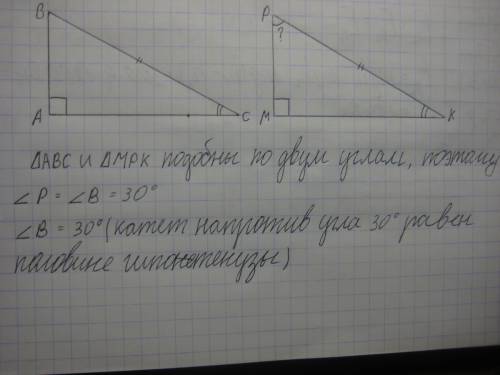 B
P
?
A
C
M
K
ΔABC и ΔMPK подобны по двум углам, поэтому
∠P = ∠B = 30°
∠B = 30° (катет напротив угла 30° равен
половине гипотенузы)